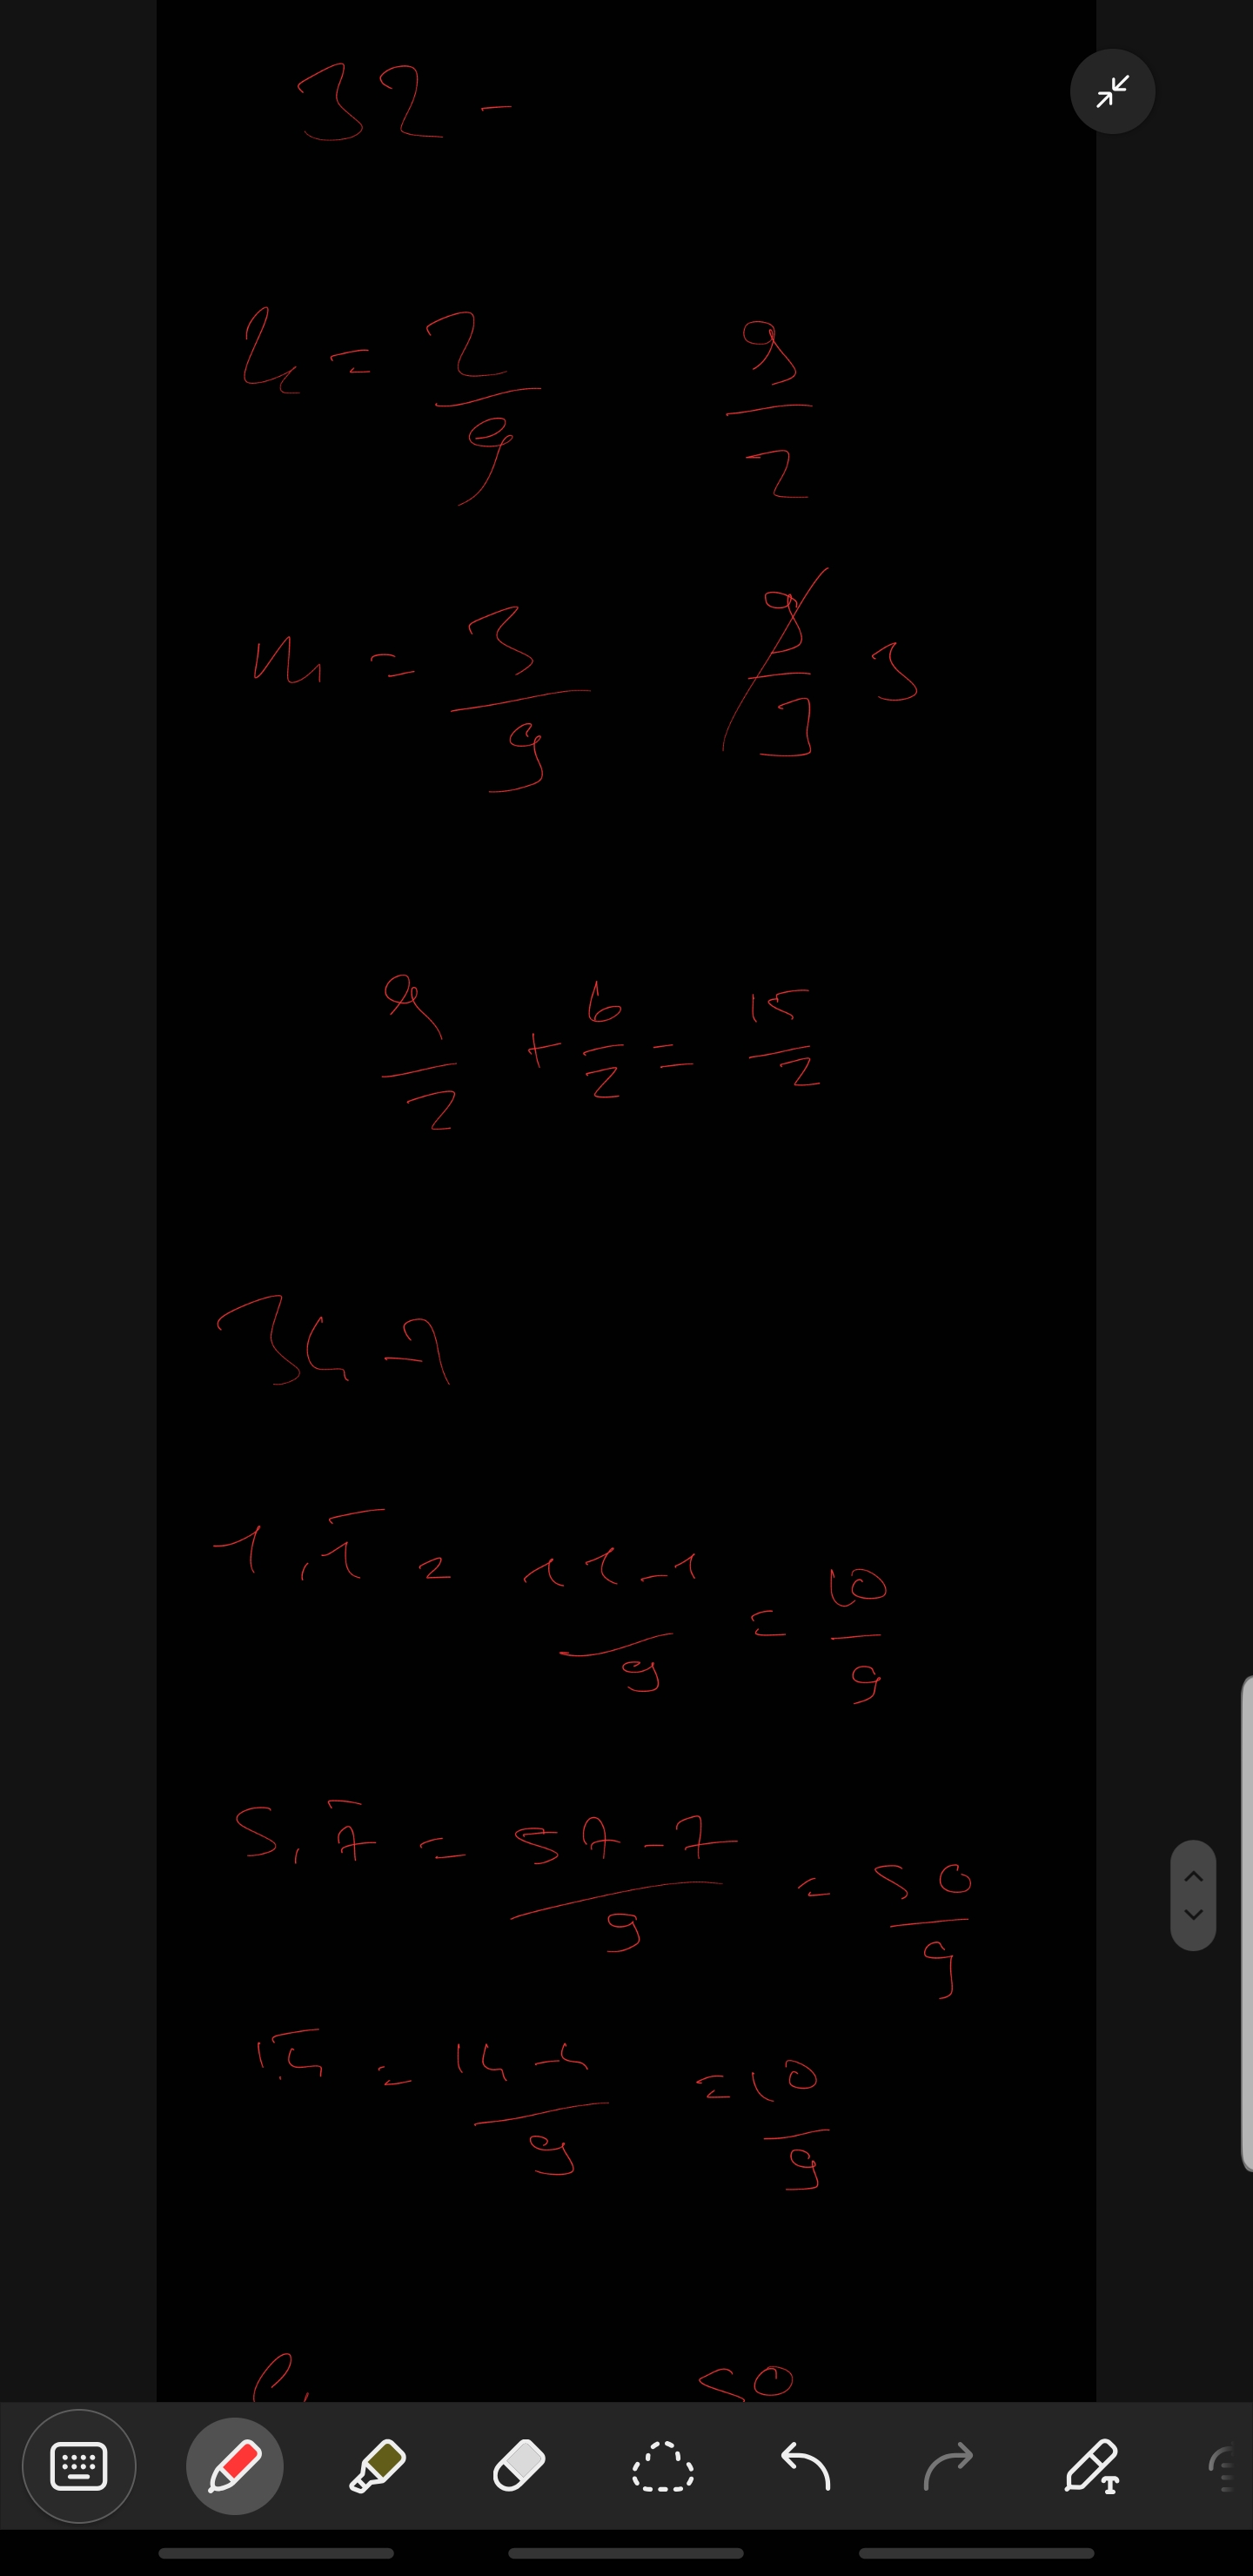 32 -
k = 2/9 9/2
m = 3/9 9/3 3
9/2 + 6/2 = 15/2
34 -
1,1̅ = 11-1/9 = 10/9
5,7̅ = 57-7/9 = 50/9
1,4̅ = 14-4/9 = 10/9
50